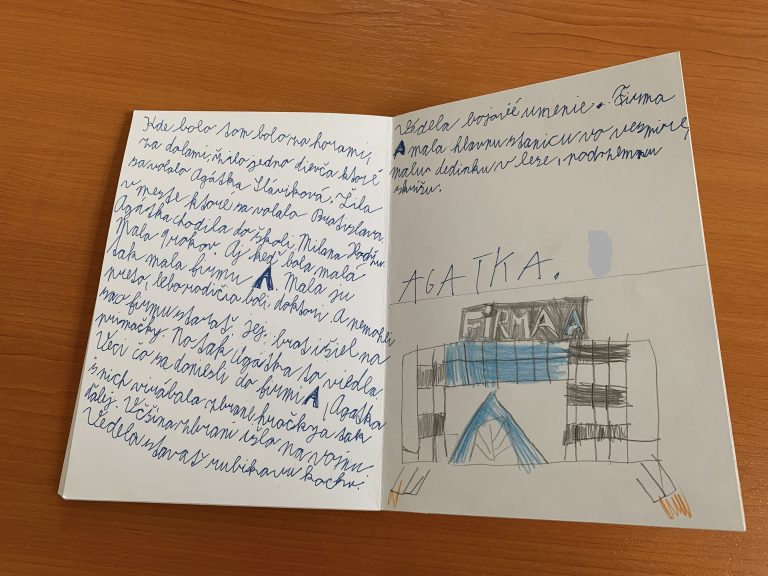 Kde bolo tam bolo za horami,
za dolami, žilo jedno dievča ktoré
sa volalo Agátka Slávíková. Žila
v meste ktoré sa volalo Bratislava.
Agátka chodila do školi Milana Hodžu.
Mala 9 rokov. Aj keď bola malá
tak mala firmu A. Mala ju
preto, lebo rodičia boli doktori. A nemohli
sa o firmu starať. Jej brat išiel na
primačky. No tak Agátka to viedla.
Veci čo sa doniesli do firmi A, Agátka
s nich virábala zbrani hračky a tak
ďalej. Väčšina zbrani išla na vojnu.
Vedela stavať rubikovu kocku.
Vedela bojové umenie. Firma
A mala hlavnu stanicu vo vesmíre,
malu dedinku v lese, podzemnu
skrišu.
AGATKA.
FIRMA A